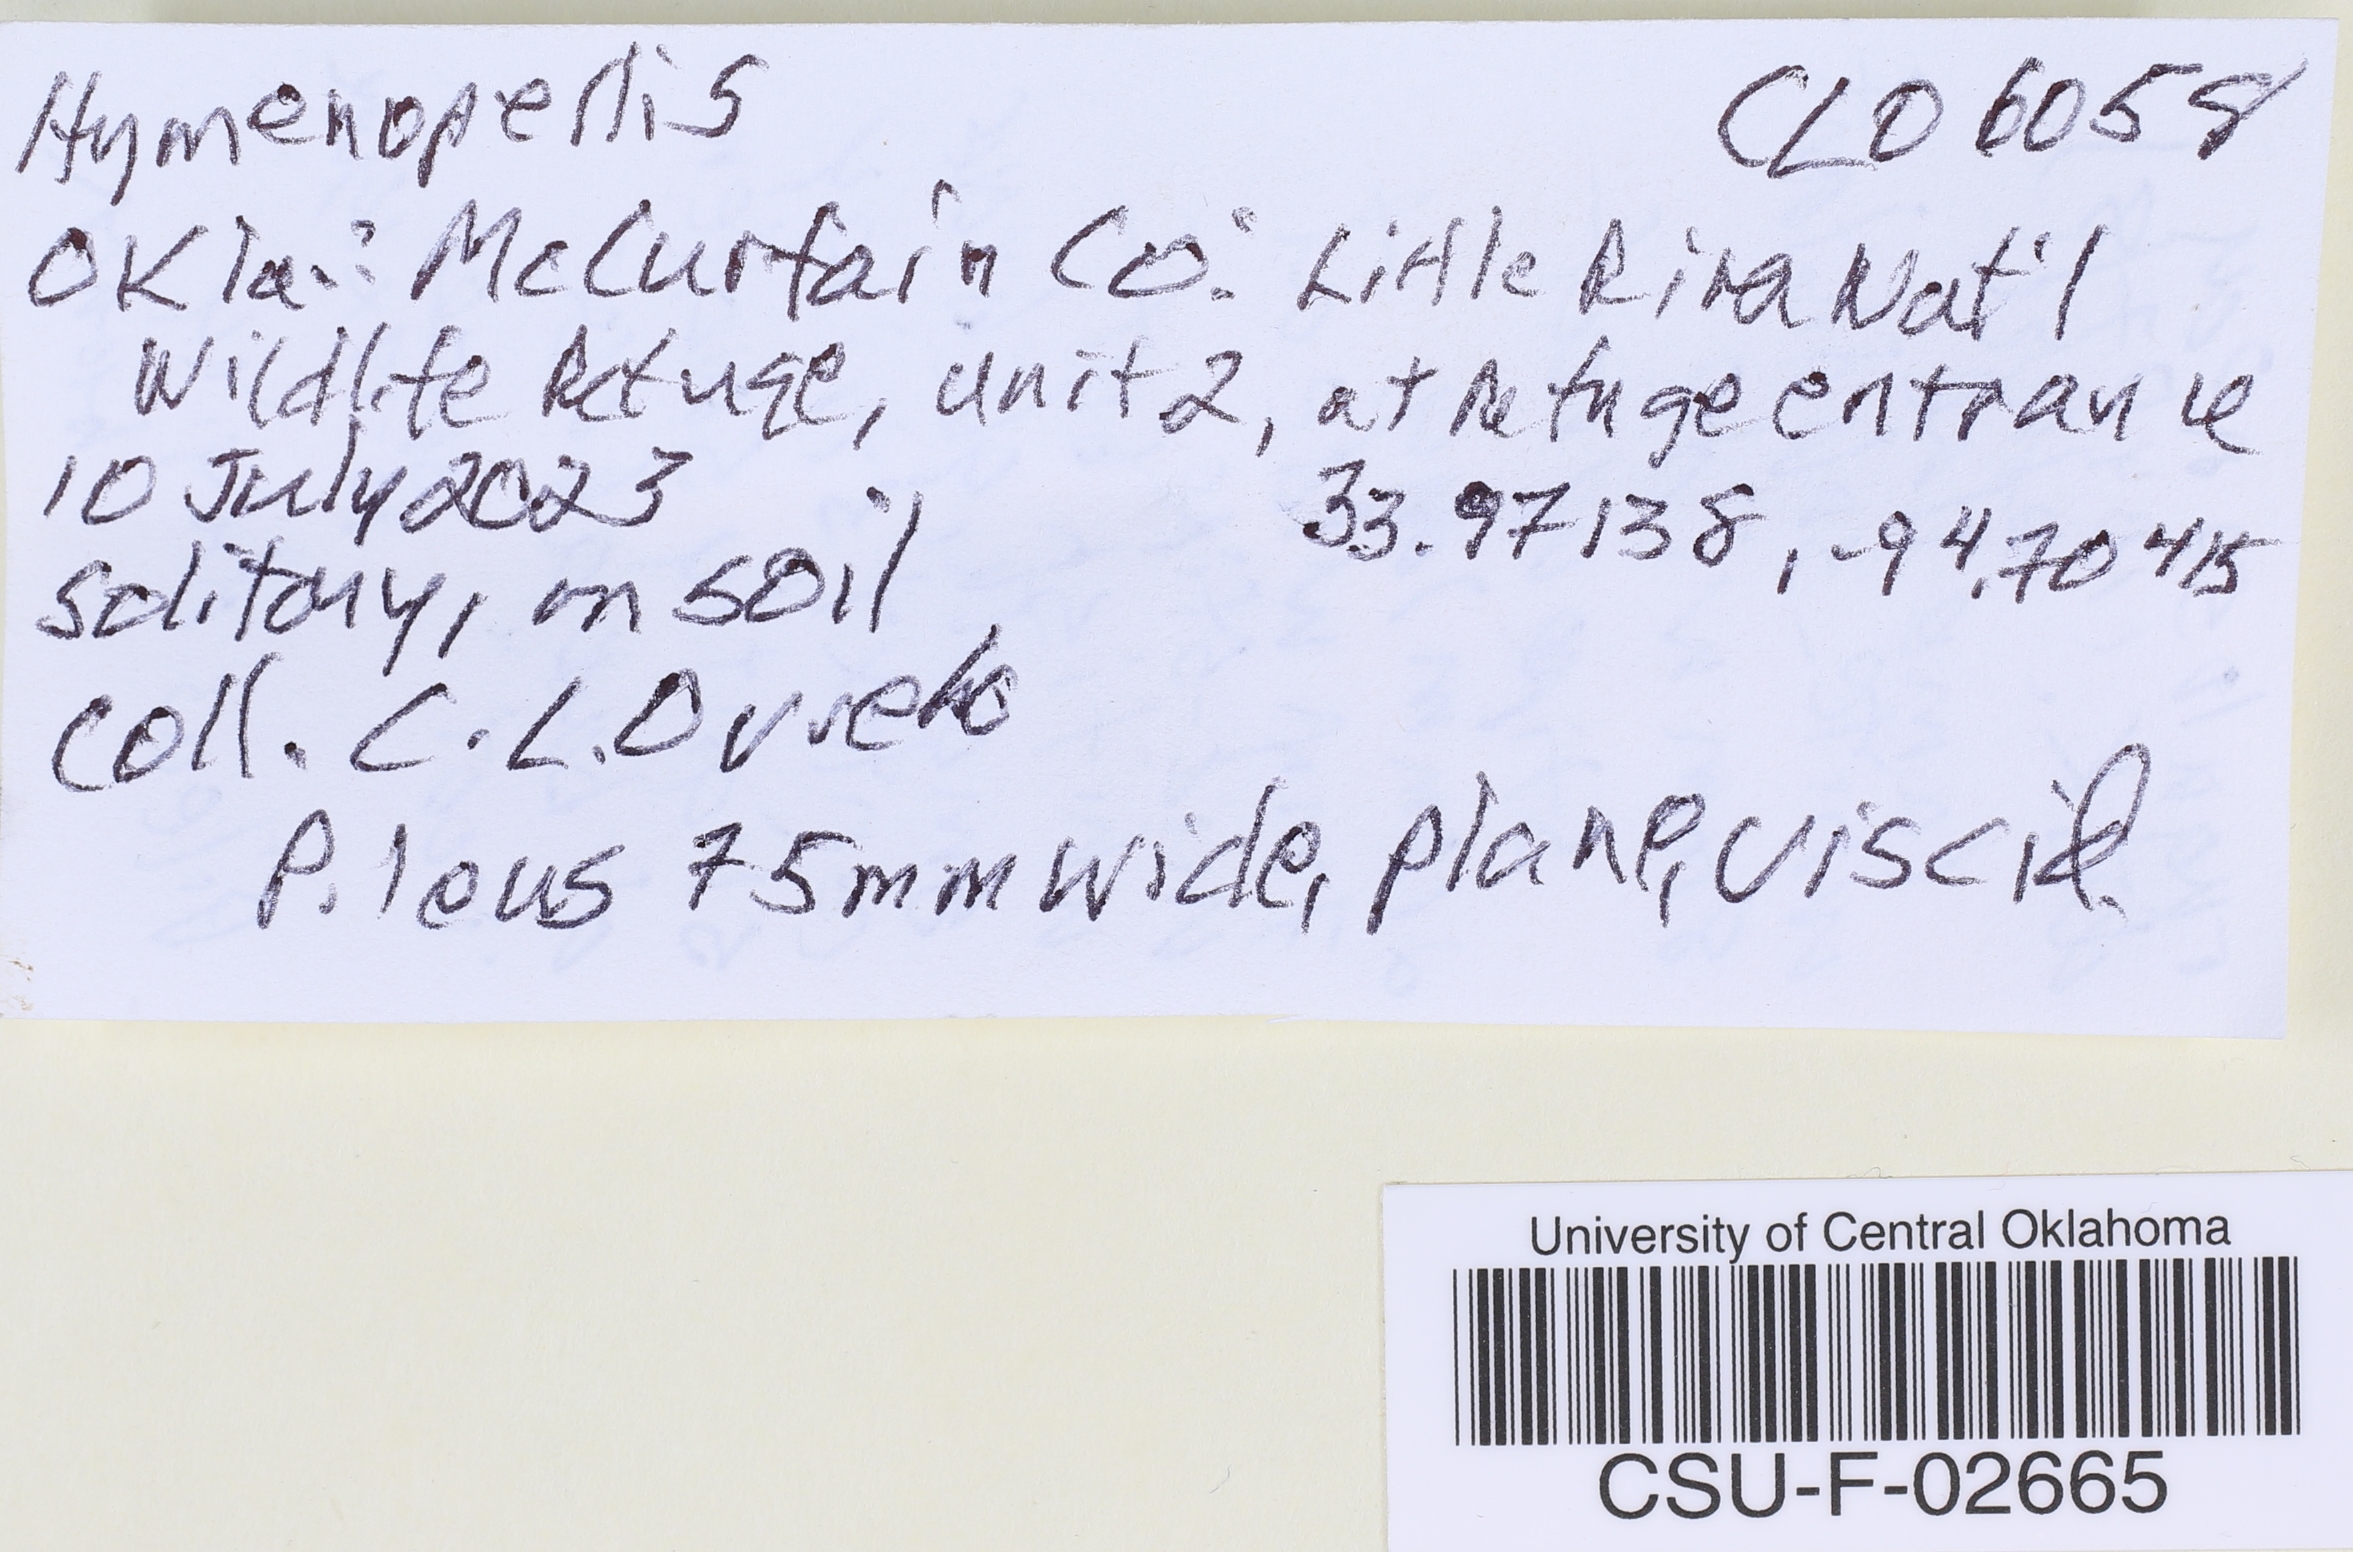 Hymenopellis CLO 6058
Okla.: McCurtain Co: Little River Nat'l
Wildlife Refuge, Unit 2, at Refuge entrance
10 July 2023 33.97138, -94.70415
Solitary, on soil
Coll. C. L. Ovrebo
Pileus 75mm wide, plane, viscid.
University of Central Oklahoma
CSU-F-02665